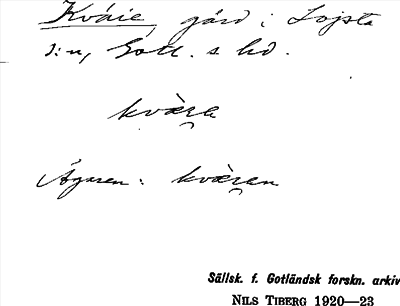 Kvie gård i Lojsta
s:n, Gotl. s. hd.
kvære
Ägaren: kværen
Sällsk. f. Gotländsk forskn. arkiv
NILS TIBERG 1920—23